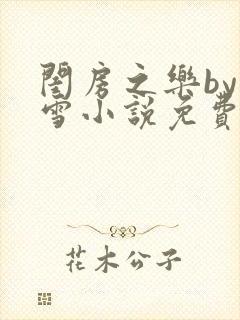 閨房之樂by
雪小說免費
花木公子